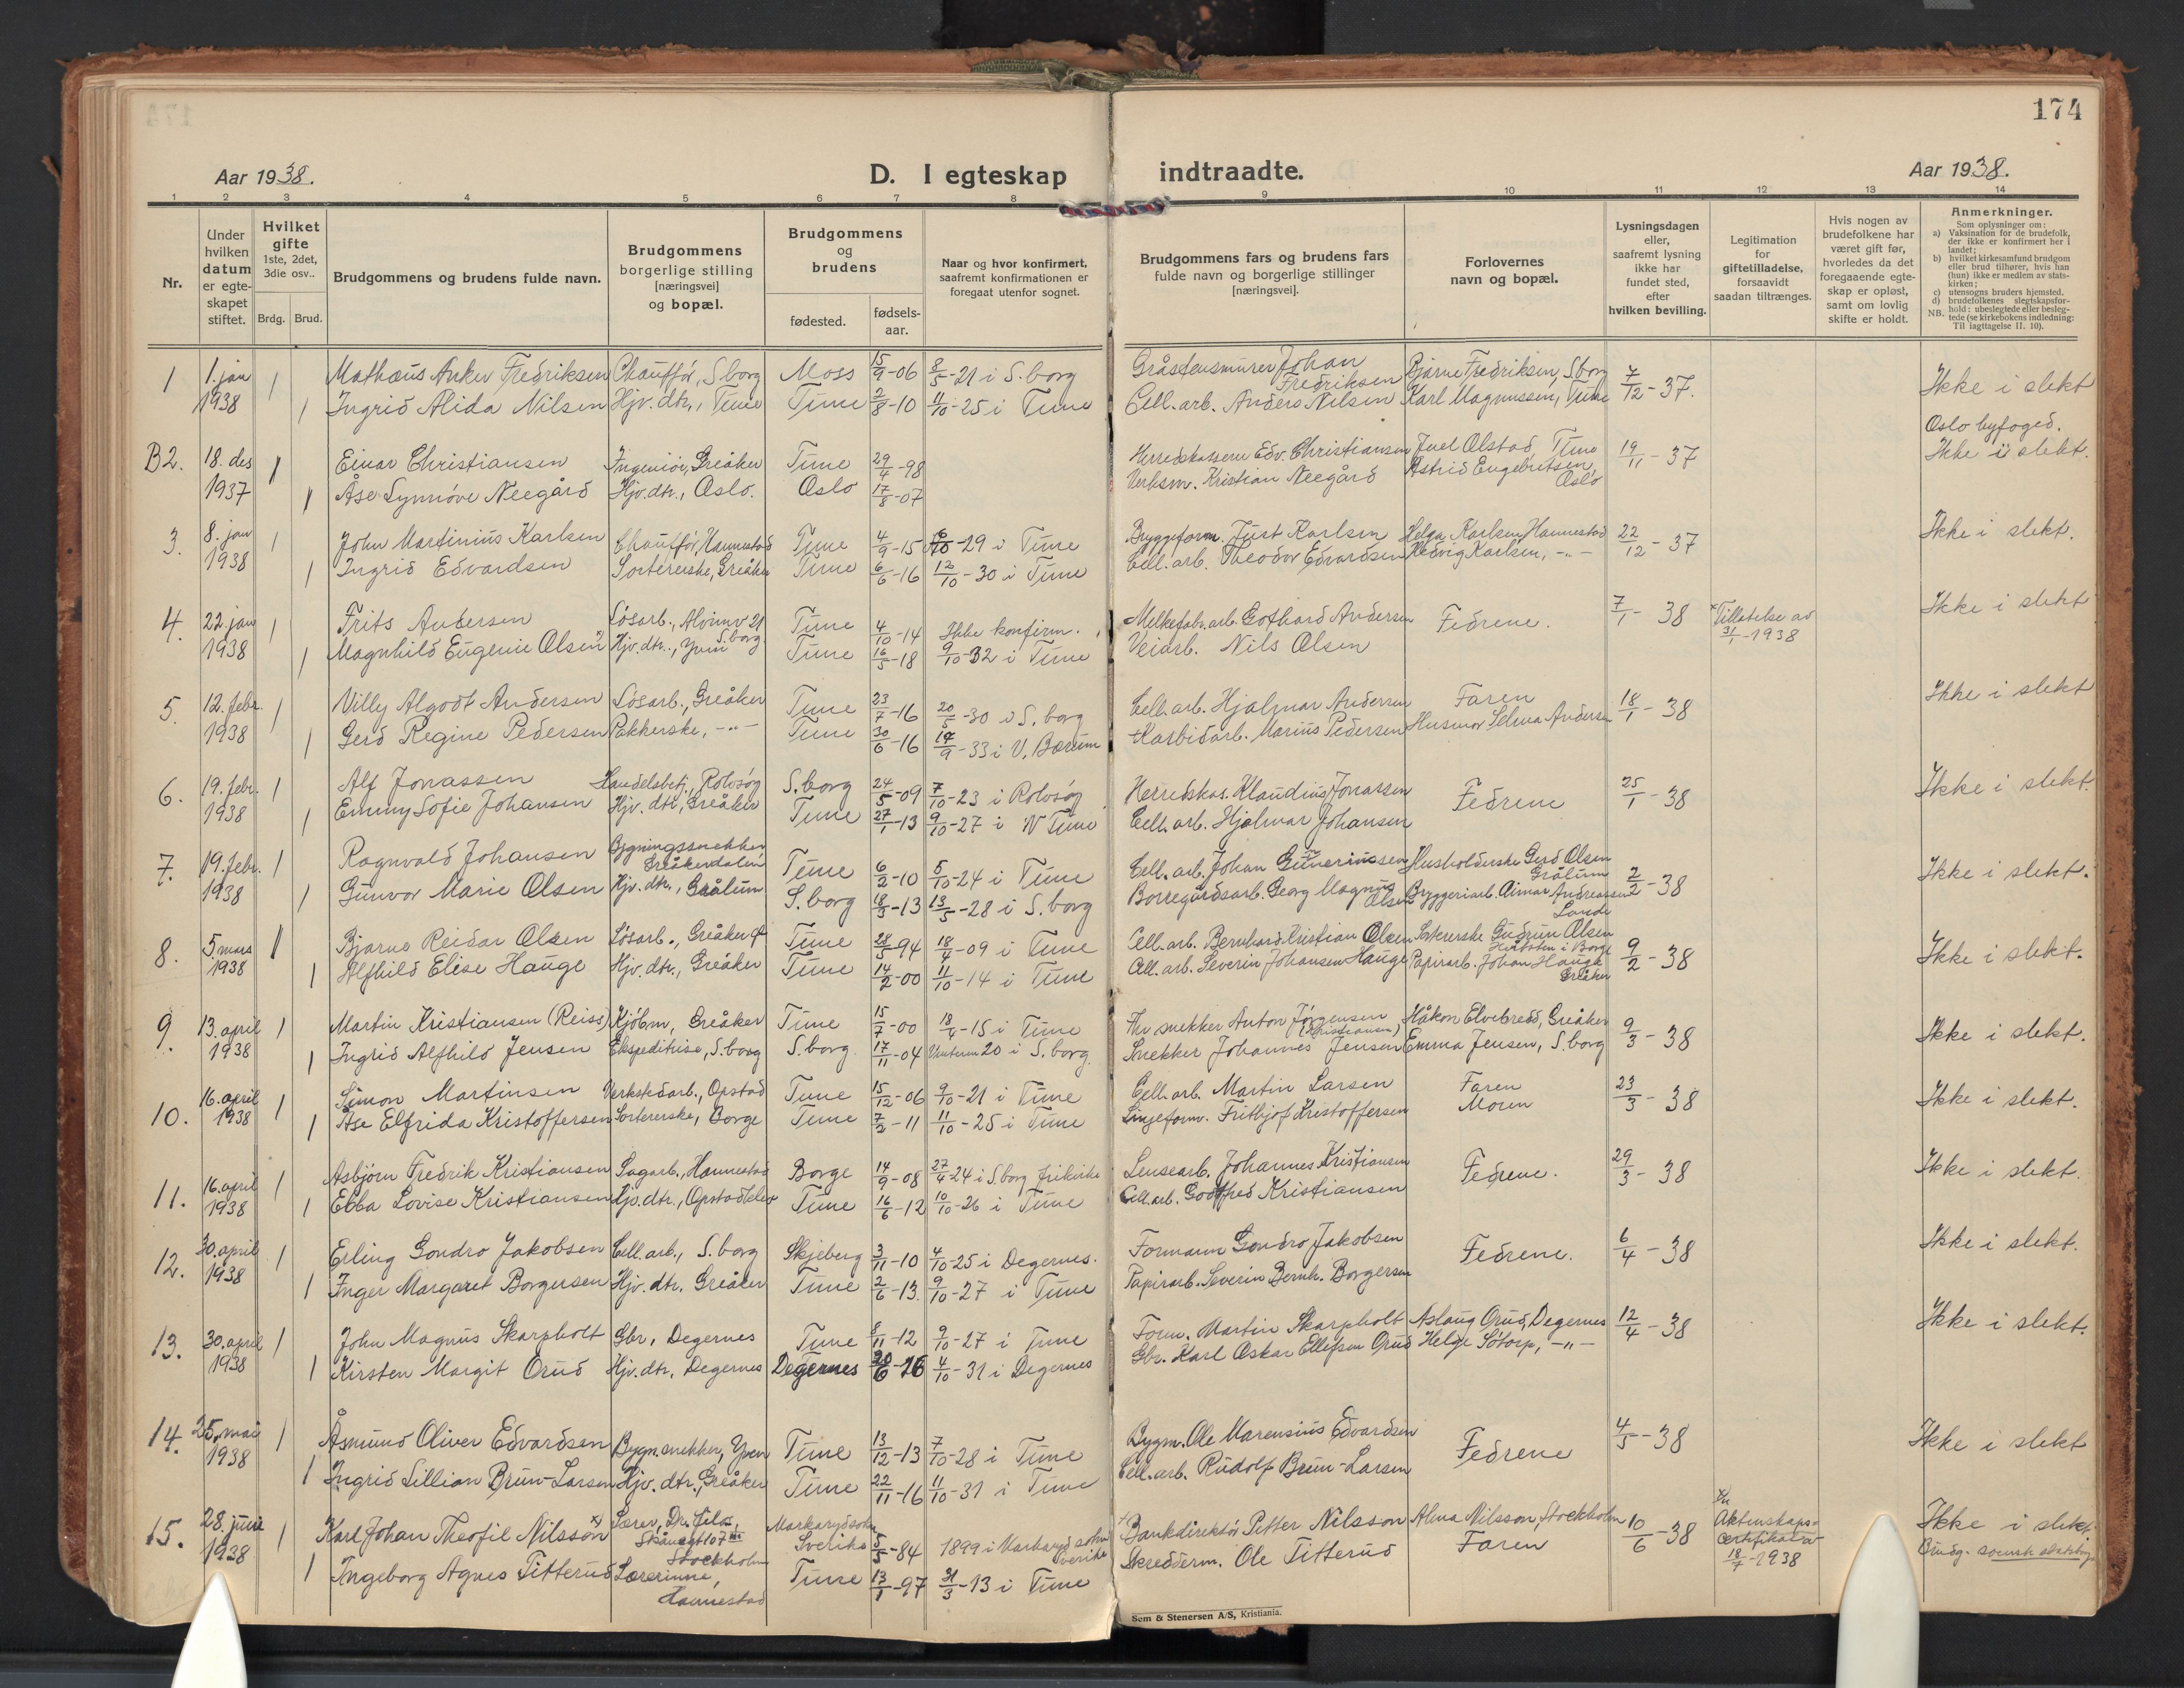 174
Aar 1938.
D. I egteskap indtraadte.
Aar 1938.
1 2 3 4 5 6 7 8 9 10 11 12 13 14
Nr.
Under hvilken datum er egteskapet stiftet.
Hvilket gifte 1ste, 2det, 3die osv..
Brdg. Brud.
Brudgommens og brudens fulde navn.
Brudgommens borgerlige stilling [næringsvei] og bopæl.
Brudgommens og brudens
fødested.
fødsels-aar.
Naar og hvor konfirmert, saafremt konfirmationen er foregaat utenfor sognet.
Brudgommens fars og brudens fars fulde navn og borgerlige stillinger [næringsvei].
Forlovernes navn og bopæl.
Lysningsdagen eller, saafremt lysning ikke har fundet sted, efter hvilken bevilling.
Legitimation for giftetilladelse, forsaavidt saadan tiltrænges.
Hvis nogen av brudefolkene har været gift før, hvorledes da det foregaaende egteskap er opløst, samt om lovlig skifte er holdt.
Anmerkninger.
Som oplysninger om:
a) Vaksination for de brudefolk, der ikke er konfirmert her i landet;
b) hvilket kirkesamfund brudgom eller brud tilhører, hvis han (hun) ikke er medlem av statskirken;
c) utensogns bruders hjemsted.
d) brudefolkenes slegtskapsforhold: ubeslegtede eller beslegtede (se kirkebokens indledning: Til iagttagelse II. 10).
NB.
1 1. jan 1 Mathæus Anker Fredriksen Chauffør, S.borg Moss 15/9-06 8/5-21 i S. borg Gråstensmurer Johan Fredriksen Bjarne Fredriksen, S.borg 7/12-37. Ikke i slekt
1938 1 Ingrid Alida Nilsen Hjv. dtr., Tune Tune 2/8-10 11/10-25 i Tune Cell. arb. Anders Nilsen Karl Magnussen, Tune
Oslo byfoged.
B2. 18. des 1 Einar Christiansen Ingeniør, Greåker Tune 29/4-98 Herredskasserer Edv. Christiansen Juel Olstad, Tune 19/11-37 Ikke i slekt.
1937 1 Åse Synnøve Neegård Hjv. dtr., Oslo. Oslo 17/8-07 Verksm. Kristian Neegård Astrid Engebretsen, Oslo
3. 8. jan 1 John Martinius Karlsen Chauffør, Hannestad Tune 4/9-15 /10-29 i Tune Byggeform. Just Karlsen Helga Karlsen, Hannestad 22/12-37 Ikke i slekt.
1938 1 Ingrid Edvardsen Sortererske, Greåker Tune 6/6-16 12/10-30 i Tune Cell. arb. Theodor Edvardsen Hedvig Karlsen, -"-
4. 22. jan 1 Frits Andersen Løsarb., Alvimv 21 S.borg Tune 4/10-14 Ikke konfirm. Melkefabr. arb. Gothard Andersen Fedrene. 7/1-38 Tillatelse av 31/1-1938 Ikke i slekt
1938 1 Magnhild Eugenie Olsen Hjv. dtr., Yven Tune 16/5-18 9/10-32 i Tune Veiarb. Nils Olsen
5. 12. febr. 1 Villy Algodt Andersen Løsarb., Greåker Tune 23/7-16 20/5-30 i S. borg Cell. arb. Hjalmar Andersen Faren 18/1-38 Ikke i slekt
1938 1 Gerd Regine Pedersen Pakkerske, -"- Tune 30/6-16 /9-33 i V. Bærum Karbidarb. Marius Pedersen Husmor Selma Andersen
6. 19. febr. 1 Alf Jonassen Handelsbetj., Rolvsøy S. borg 24/5-09 7/10-23 i Rolvsøy Herredskas. Klaudius Jonassen Fedrene 25/1-38 Ikke i slekt.
1938 1 Emmy Sofie Johansen Hjv. dtr., Greåker Tune 27/1-13 9/10-27 i Tune Cell. arb. Hjalmar Johansen
7. 19. febr. 1 Ragnvald Johansen Bygningssnekker, Greåkerdalen Tune 6/2-10 5/10-24 i Tune Cell. arb. Johan Gunerinssen Husholderske Gerd Olsen Grålum 2/2-38 Ikke i slekt.
1938 1 Gunvor Marie Olsen Hjv. dtr., Grålum S. borg 18/3-13 13/5-28 i S. borg Borregårdsarb. Georg Magnus Olsen Bryggeriarb. Aimar Andreassen Lande
8. 5. mars 1 Bjarne Reidar Olsen Løsarb., Greåker Tune 28/5-94 18/4-09 i Tune Cell. arb. Bernhard Kristian Olsen Sortererske Gudrun Olsen i Borge 9/2-38 Ikke i slekt.
1938 1 Alfhild Elise Hauge Hjv. dtr., Greåker Tune 14/2-00 11/10-14 i Tune Cell. arb. Severin Johansen Hauge Papirarb. Johan Hauge Greåker
9. 13. april 1 Martin Kristiansen (Reiss) Kjøbm, Greåker Tune 15/7-00 18/4-15 i Tune Fhv snekker Anton Jørgensen (Kristiansen) Håkon Elvebredd, Greåker 9/3-38 Ikke i slekt.
1938 1 Ingrid Alfhild Jensen Ekspeditrise, S. borg S. borg. 17/11-04 20 i S. borg. Snekker Johannes Jensen Emma Jensen, S. borg
10. 16. april 1 Simon Martinsen Verkstedarb., Opstad Tune 15/12-06 9/10-21 i Tune Cell. arb. Martin Larsen Faren 23/3-38 Ikke i slekt.
1938 1 Åse Elfrida Kristoffersen Sortererske, Borge Tune 7/2-11 11/10-25 i Tune Linjeform. Frithjof Kristoffersen Moren
11. 16. april 1 Asbjørn Fredrik Kristiansen Sagarb., Hannestad Borge 14/9-08 27/4-24 i S. borg frikirke Lensearb. Johannes Kristiansen Fedrene. 29/3-38 Ikke i slekt.
1938 1 Ebba Lovise Kristiansen Hjv. dtr., Tune 16/6-12 10/10-26 i Tune Cell. arb. Godtfred Kristiansen
12. 30. april 1 Erling Gondro Jakobsen Cell. arb., S. borg Skjeberg 3/11-10 4/10-25 i Degernes. Formann Gondro Jakobsen Fedrene. 6/4-38 Ikke i slekt.
1938 1 Inger Margaret Borgersen Hjv. dtr. Greåker Tune 2/6-13. 9/10-27 i Tune Papirarb. Severin Bernh. Borgersen
13. 30. april 1 John Magnus Skarpholt Gbr., Degernes Tune 8/11-12 9/10-27 i Tune Form. Martin Skarpholt Aslaug Orud, Degernes 12/4-38 Ikke i slekt.
1938 1 Kirsten Margit Orud Hjv. dtr, Degernes Degernes 20/6-16 4/10-31 i Degernes Gbr. Karl Oskar Ellefsen Orud Helge Søtorp, -"-
14. 25. mai 1 Åsmund Oliver Edvardsen Bygn. snekker, Yven Tune 13/12-13 7/10-28 i Tune Bygm. Ole Marensius Edvardsen Fedrene 4/5-38 Ikke i slekt
1938 1 Ingrid Lillian Brun-Larsen Hjv. dtr., Greåker Tune 22/11-16 11/10-31 i Tune Cell. arb. Rudolf Brun-Larsen
15. 28. juni 1 Karl Johan Theofil Nilsson x) Lærer, Dr. fil., Skånegt 107 III Stockholm Markaryd sokn Sverike 5/5-84 1899 i Markaryd sokn Sverike Bankdirektør Petter Nilsson Alma Nilsson, Stockholm 10/6-38 Aktenskaps-certifikat av 18/7-1938 Ikke i slekt.
1938 1 Ingeborg Agnes Titterud Lærerinne, Hannestad Tune 13/1-97 31/3-13 i Tune Skredderm. Ole Titterud Faren Brudg. svensk statsborg.
Sem & Stenersen A/S, Kristiania.